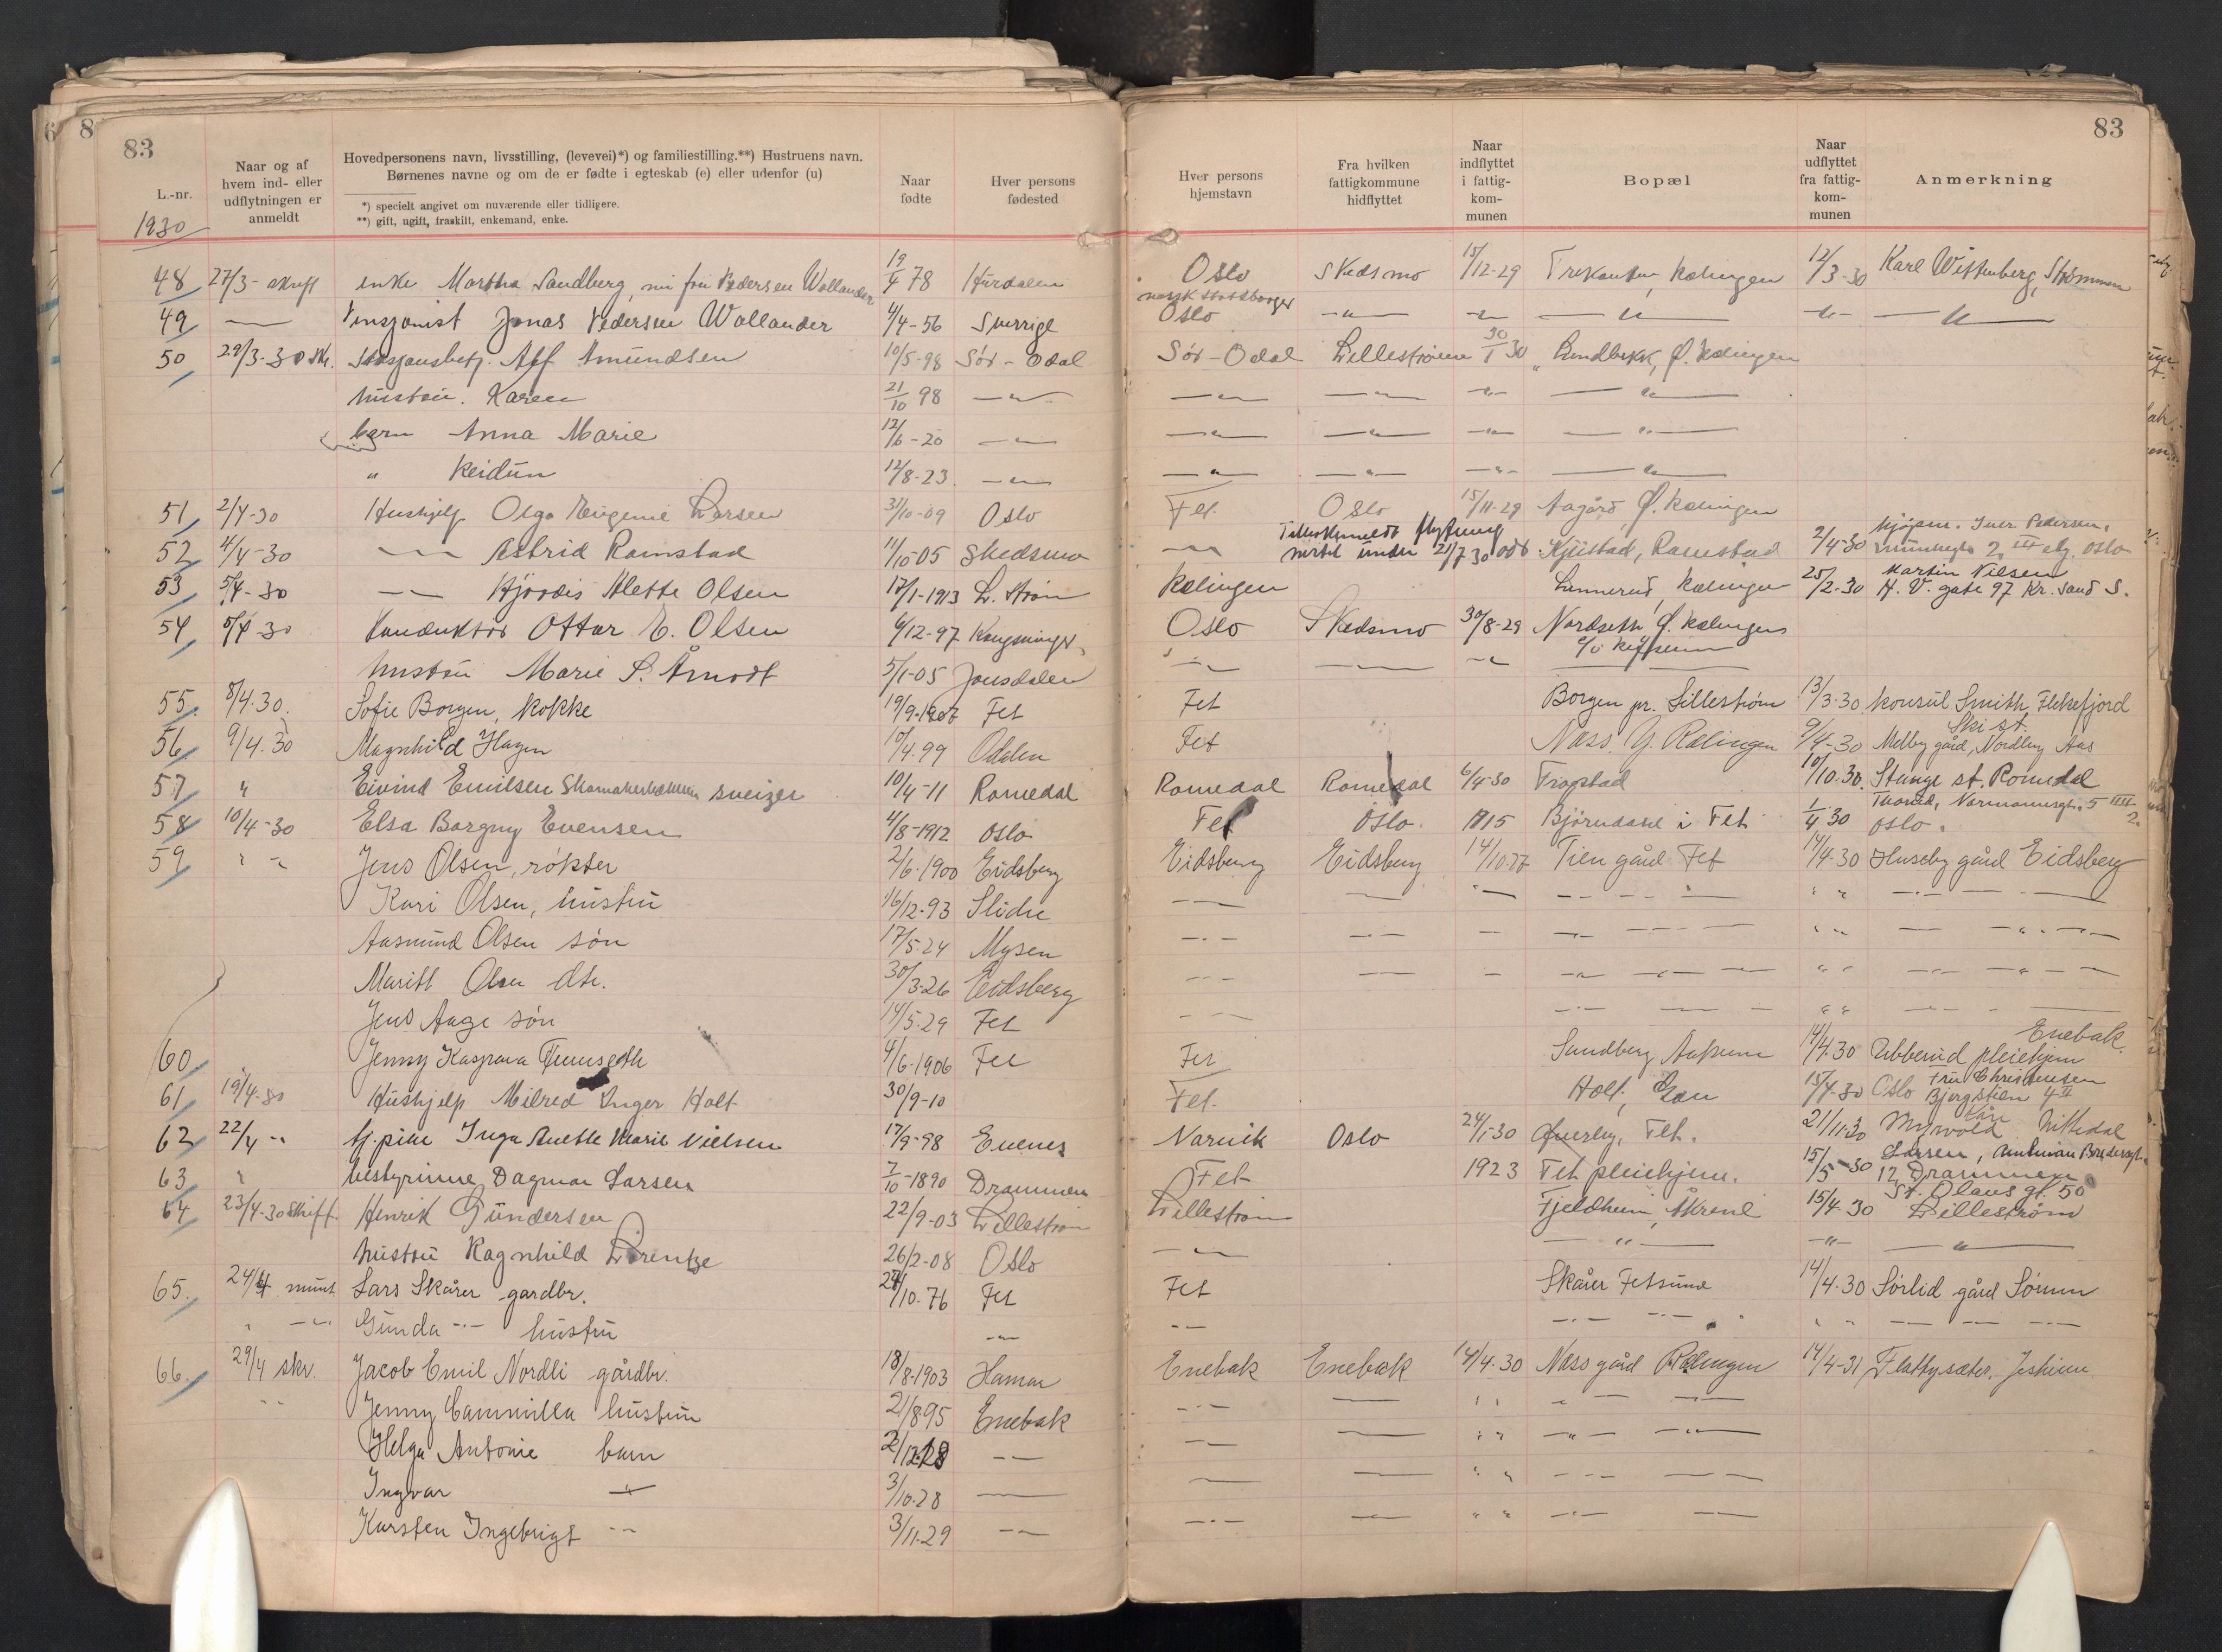 83
83
L.-nr.
Naar og af hvem ind- eller udflytningen er anmeldt
Hovedpersonens navn, livsstilling, (levevei)*) og familiestilling.**) Hustruens navn.
Børnenes navne og om de er fødte i egteskab (e) eller udenfor (u)
*) specielt angivet om nuværende eller tidligere.
**) gift, ugift, fraskilt, enkemand, enke.
Naar fødte
Hver persons fødested
Hver persons hjemstavn
Fra hvilken fattigkommune hidflyttet
Naar indflyttet i fattig-kom-munen
Bopæl
Naar udflyttet fra fattig-kom-munen
Anmerkning
1930
48 27/3 - skrift enke Martha Sandberg, nu fru Pedersen Wallander 19/4 78 Oslo Skedsmo 15/12-29 Trekanten, Rælingen 12/3-30 Karl Wittenberg, Strømmen
norsk statsborger
49 — Pensjonist Jonas Pedersen Wallander 4/4-56 Sverrige Oslo —"— —"— —"— —"— —"—
50 29/3-30 skr. Amundsen 10/5-98 Sör-Odal Sör-Odal Lillestrøm 30/1 30 Lundbekk, Ø. Rælingen
hustru. Karen 21/10 98 —"— —"— —"— —"— —"—
barn Anna Marie 12/6-20 —"— —"— —"— —"— —"—
" Reidun 12/8-23 —"— —"— —"— —"— —"—
51 2/4-30 Hushjelp Olga Eugenie Larsen 31/10-09 Oslo Fet. Oslo 15/11-29 Aagård, Ø. Rælingen
52 4/4-30 —"— Astrid Ramstad 11/10-05 Skedsmo —"— flytning under 21/7 30 Kjustad, Ramstad 2/4-30 Iver Pedersen, Munkegt. 2 III Oslo
53 5/4-30 —"— Hjördis Alette Olsen 17/1-1913 L. ström Rælingen Lunnerud, Rælingen 25/2-30 Martin Nilsen H. V. gate 97 Kr. sand S.
54 5/4-30 Konduktör Ottar E. Olsen 6/12-97 Kongsvinger Oslo Skedsmo 30/8-29 Nordseth Ø. Rælingen
hustru Marie S. Åmodt 5/1-05 —"— —"— —"—
55. 8/4.30. Sofie Borgen, kokke 19/9-1907 Fet Fet Borgen pr. Lillestrøm 13/3-30 konsul Smith, Flekefjord
56 9/4.30 Magnhild Hagen 15/4.99 Odalen Fet Næss, Y. Rælingen 9/4-30 Ski st. Melby gård, Nordby Aas
57 " Eivind Emilsen sveizer 10/4-11 Romedal Romedal Romedal 6/4-30 Frogstad 10/10.30. Stange st. Romedal
58 10/4-30 Elsa Borgny Evensen 4/8-1912 Oslo Fet Oslo. 1915 Björndalel i Fet 1/4 30 Normannsgt. 5 III Oslo.
59 " - Jens Olsen, røkter 2/6-1900 Eidsberg Eidsberg Eidsberg 14/10 27 Tien gård Fet 14/4.30 Huseby gård Eidsberg
Kari Olsen, hustru 16/12-93 Slidre
Aasmund Olsen søn 17/5-24 Mysen
Maritt Olsen dtr. 30/3-26 Eidsberg
Jens Aage søn 14/5-29 Fet
60 Jenny Kaspara Tunseth 4/6-1906 Fet Fet Sandberg 14/4.30 Ubberud pleiehjem Enebak.
61 19/4-30 Hushjelp Milred Inger Holt 30/9-10 Fet. Holt, Gan 15/4-30 Oslo Fru Christensen Bjergstien 4 II
62 22/4 -"- tj.pike Inga Anette Marie Nielsen 17/9-98 Evenes Narvik Oslo 24/1-30 Østerby, Fet. 21/11-30 Myrvold Nittedal
63 " bestyrinne Dagmar Larsen 7/10-1890 Drammen Fet 1923 Fet pleiehjem. 15/5-30 Larsen, 12, Drammen
64 23/4-30 skriff. Henrik Gundersen 22/9-03 Lillestrøm Lillestrøm Fjeldheim, Åkrene 15/4-30 St. Olavs gt. 50 Lillestrøm
hustru Ragnhild Lorentze 26/2-08 Oslo —"— —"— —"— —"—
65. 24/4 munt. Lars Skårer gardbr. 24/10-76 Fet Fet Skårer Fetsund 14/4-30 Sørlid gård Sørum
" —"— Gunda -"- hustru —"—
66. 29/4 skr. Jacob Emil Nordli gårdbr. 18/8-1903 Hamar Enebak Enebak 14/4.30 Næss gård Rælingen 14/4-31 Flatbysæter, Jesheim
Jenny Cammilla hustru 21/8 95 Enebak
Helga Antonie barn 2/12.18 —"—
Ingvar —"— 3/10-28 —
Karsten Ingebrigt -"- 3/11.29 —"—